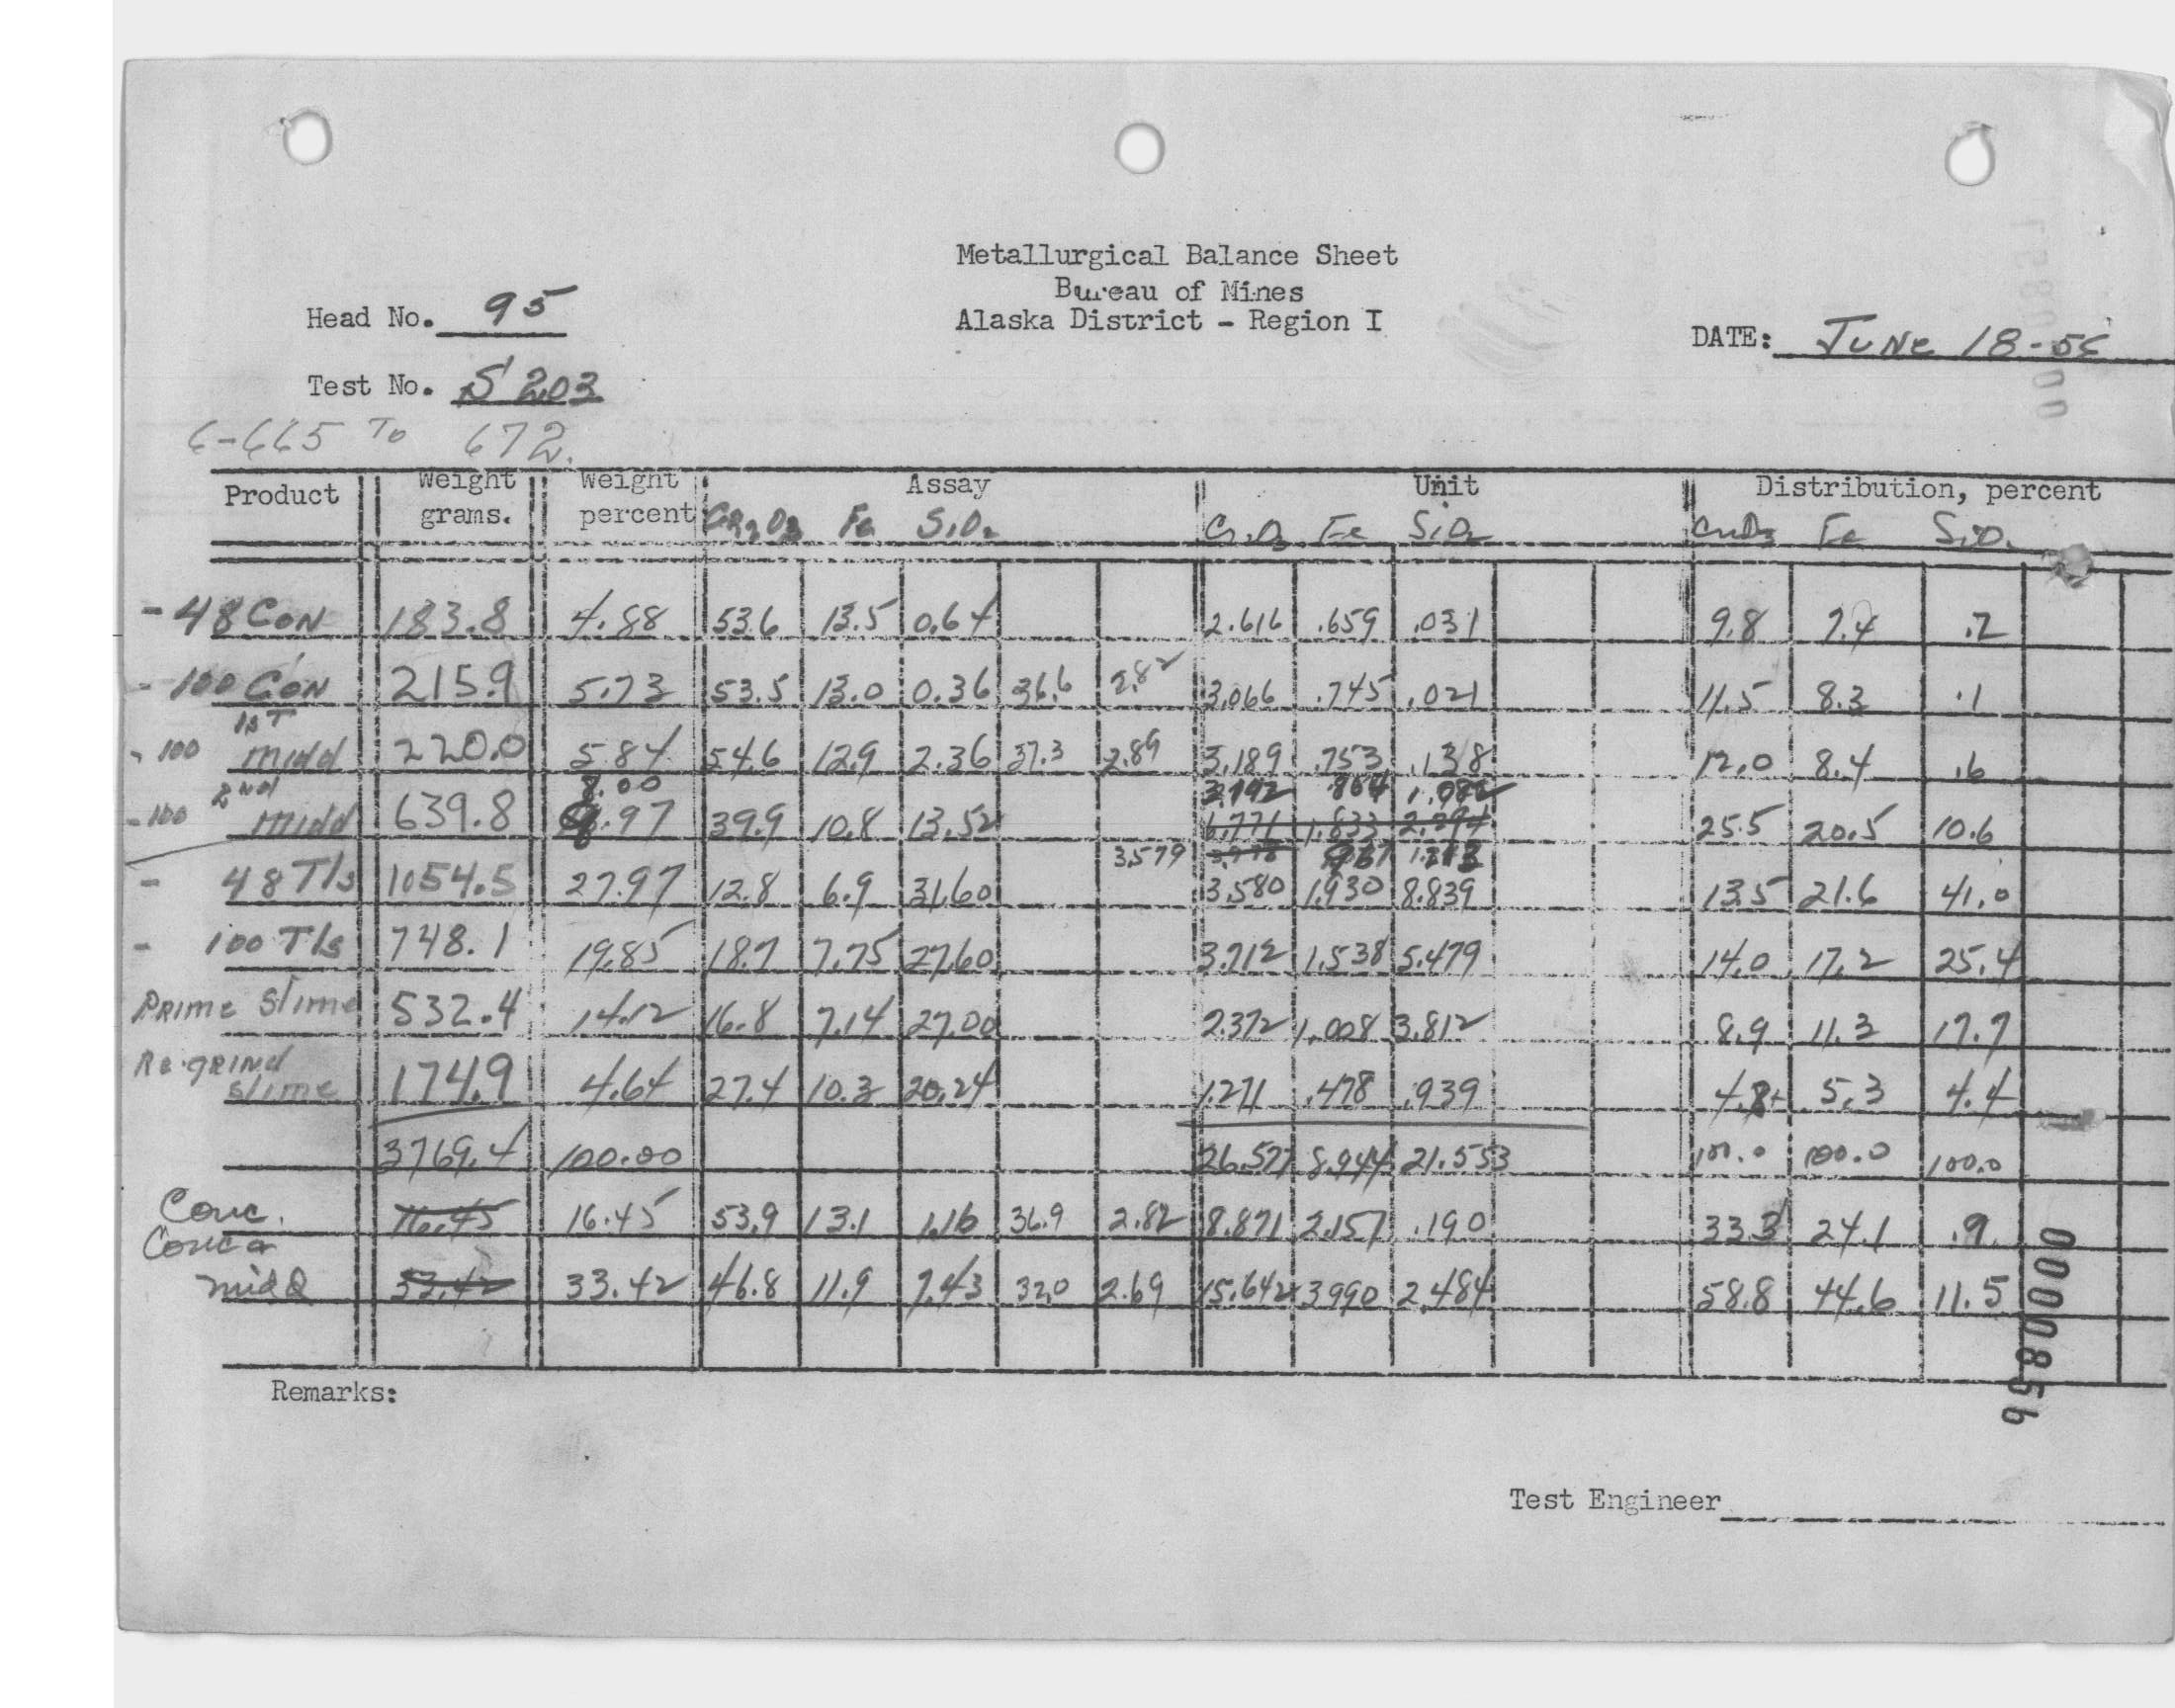 Metallurgical Balance Sheet
Bureau of Mines
Alaska District - Region I
Head No. 95
DATE: JUNE 18-56
Test No. S 203
6-665 To 672.
Product Weight grams. Weight percent Assay Unit Distribution, percent
CR2O3 Fe SiO2 Cr2O3 Fe SiO2 Cr2O3 Fe SiO2
-48 CON 183.8 4.88 53.6 13.5 0.64 2.616 .659 .031 9.8 7.4 .2
-100 CON 215.9 5.73 53.5 13.0 0.36 36.6 2.82 3.066 .745 .021 11.5 8.3 .1
-100 1ST midd 220.0 5.84 54.6 12.9 2.36 37.3 2.89 3.189 .753 .138 12.0 8.4 .6
8.00 3.192 .864 1.082
-100 2nd midd 639.8 8.97 39.9 10.8 13.52 6.771 1.833 2.294 25.5 20.5 10.6
3.579 .967 1.213
- 48 Tls 1054.5 27.97 12.8 6.9 31.60 3.580 1.930 8.839 13.5 21.6 41.0
- 100 Tls 748.1 19.85 18.7 7.75 27.60 3.712 1.538 5.479 14.0 17.2 25.4
PRIME Slime 532.4 14.12 16.8 7.14 27.00 2.372 1.008 3.812 8.9 11.3 17.7
Re-GRINd slime 174.9 4.64 27.4 10.3 20.24 1.271 .478 .939 4.8+ 5.3 4.4
3769.4 100.00 26.577 8.944 21.553 100.0 100.0 100.0
Conc. 16.45 16.45 53.9 13.1 1.16 36.9 2.82 8.871 2.157 .190 33.3 24.1 .9
Conc &
midd 33.42 33.42 46.8 11.9 7.43 32.0 2.69 15.642 3.990 2.484 58.8 44.6 11.5
Remarks:
0000856
Test Engineer